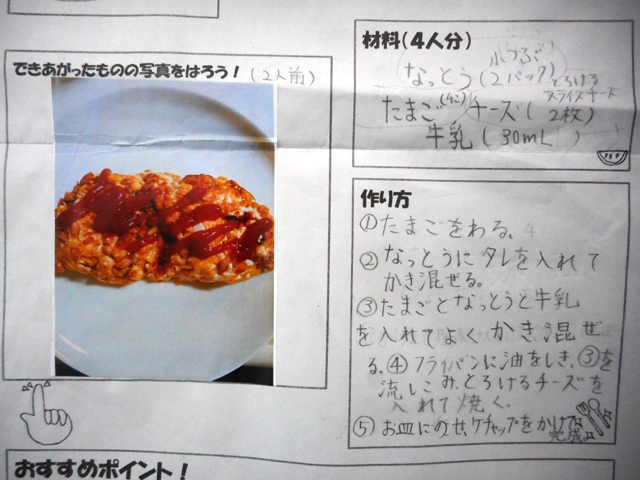 できあがったものの写真をはろう！(2人前)
材料（４人分）
小つぶ
なっとう(2パック)
とろける
スライスチーズ
たまご(4こ) チーズ(2枚)
牛乳(30mL)
作り方
①たまごをわる。
②なっとうにタレを入れて
かき混ぜる。
③たまごとなっとうと牛乳
を入れてよくかき混ぜ
る。④フライパンに油をしき、③を
流しこみ、とろけるチーズを
入れて焼く。
⑤お皿にのせ、ケチャップをかけて
完成♪
おすすめポイント！